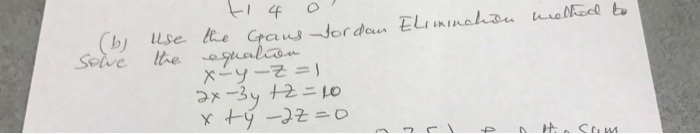 -1 4 0
(b) Use the Gaus-Jordan Elimination method to
Solve the equation
x-y-z=1
2x-3y+z=10
x+y-2z=0